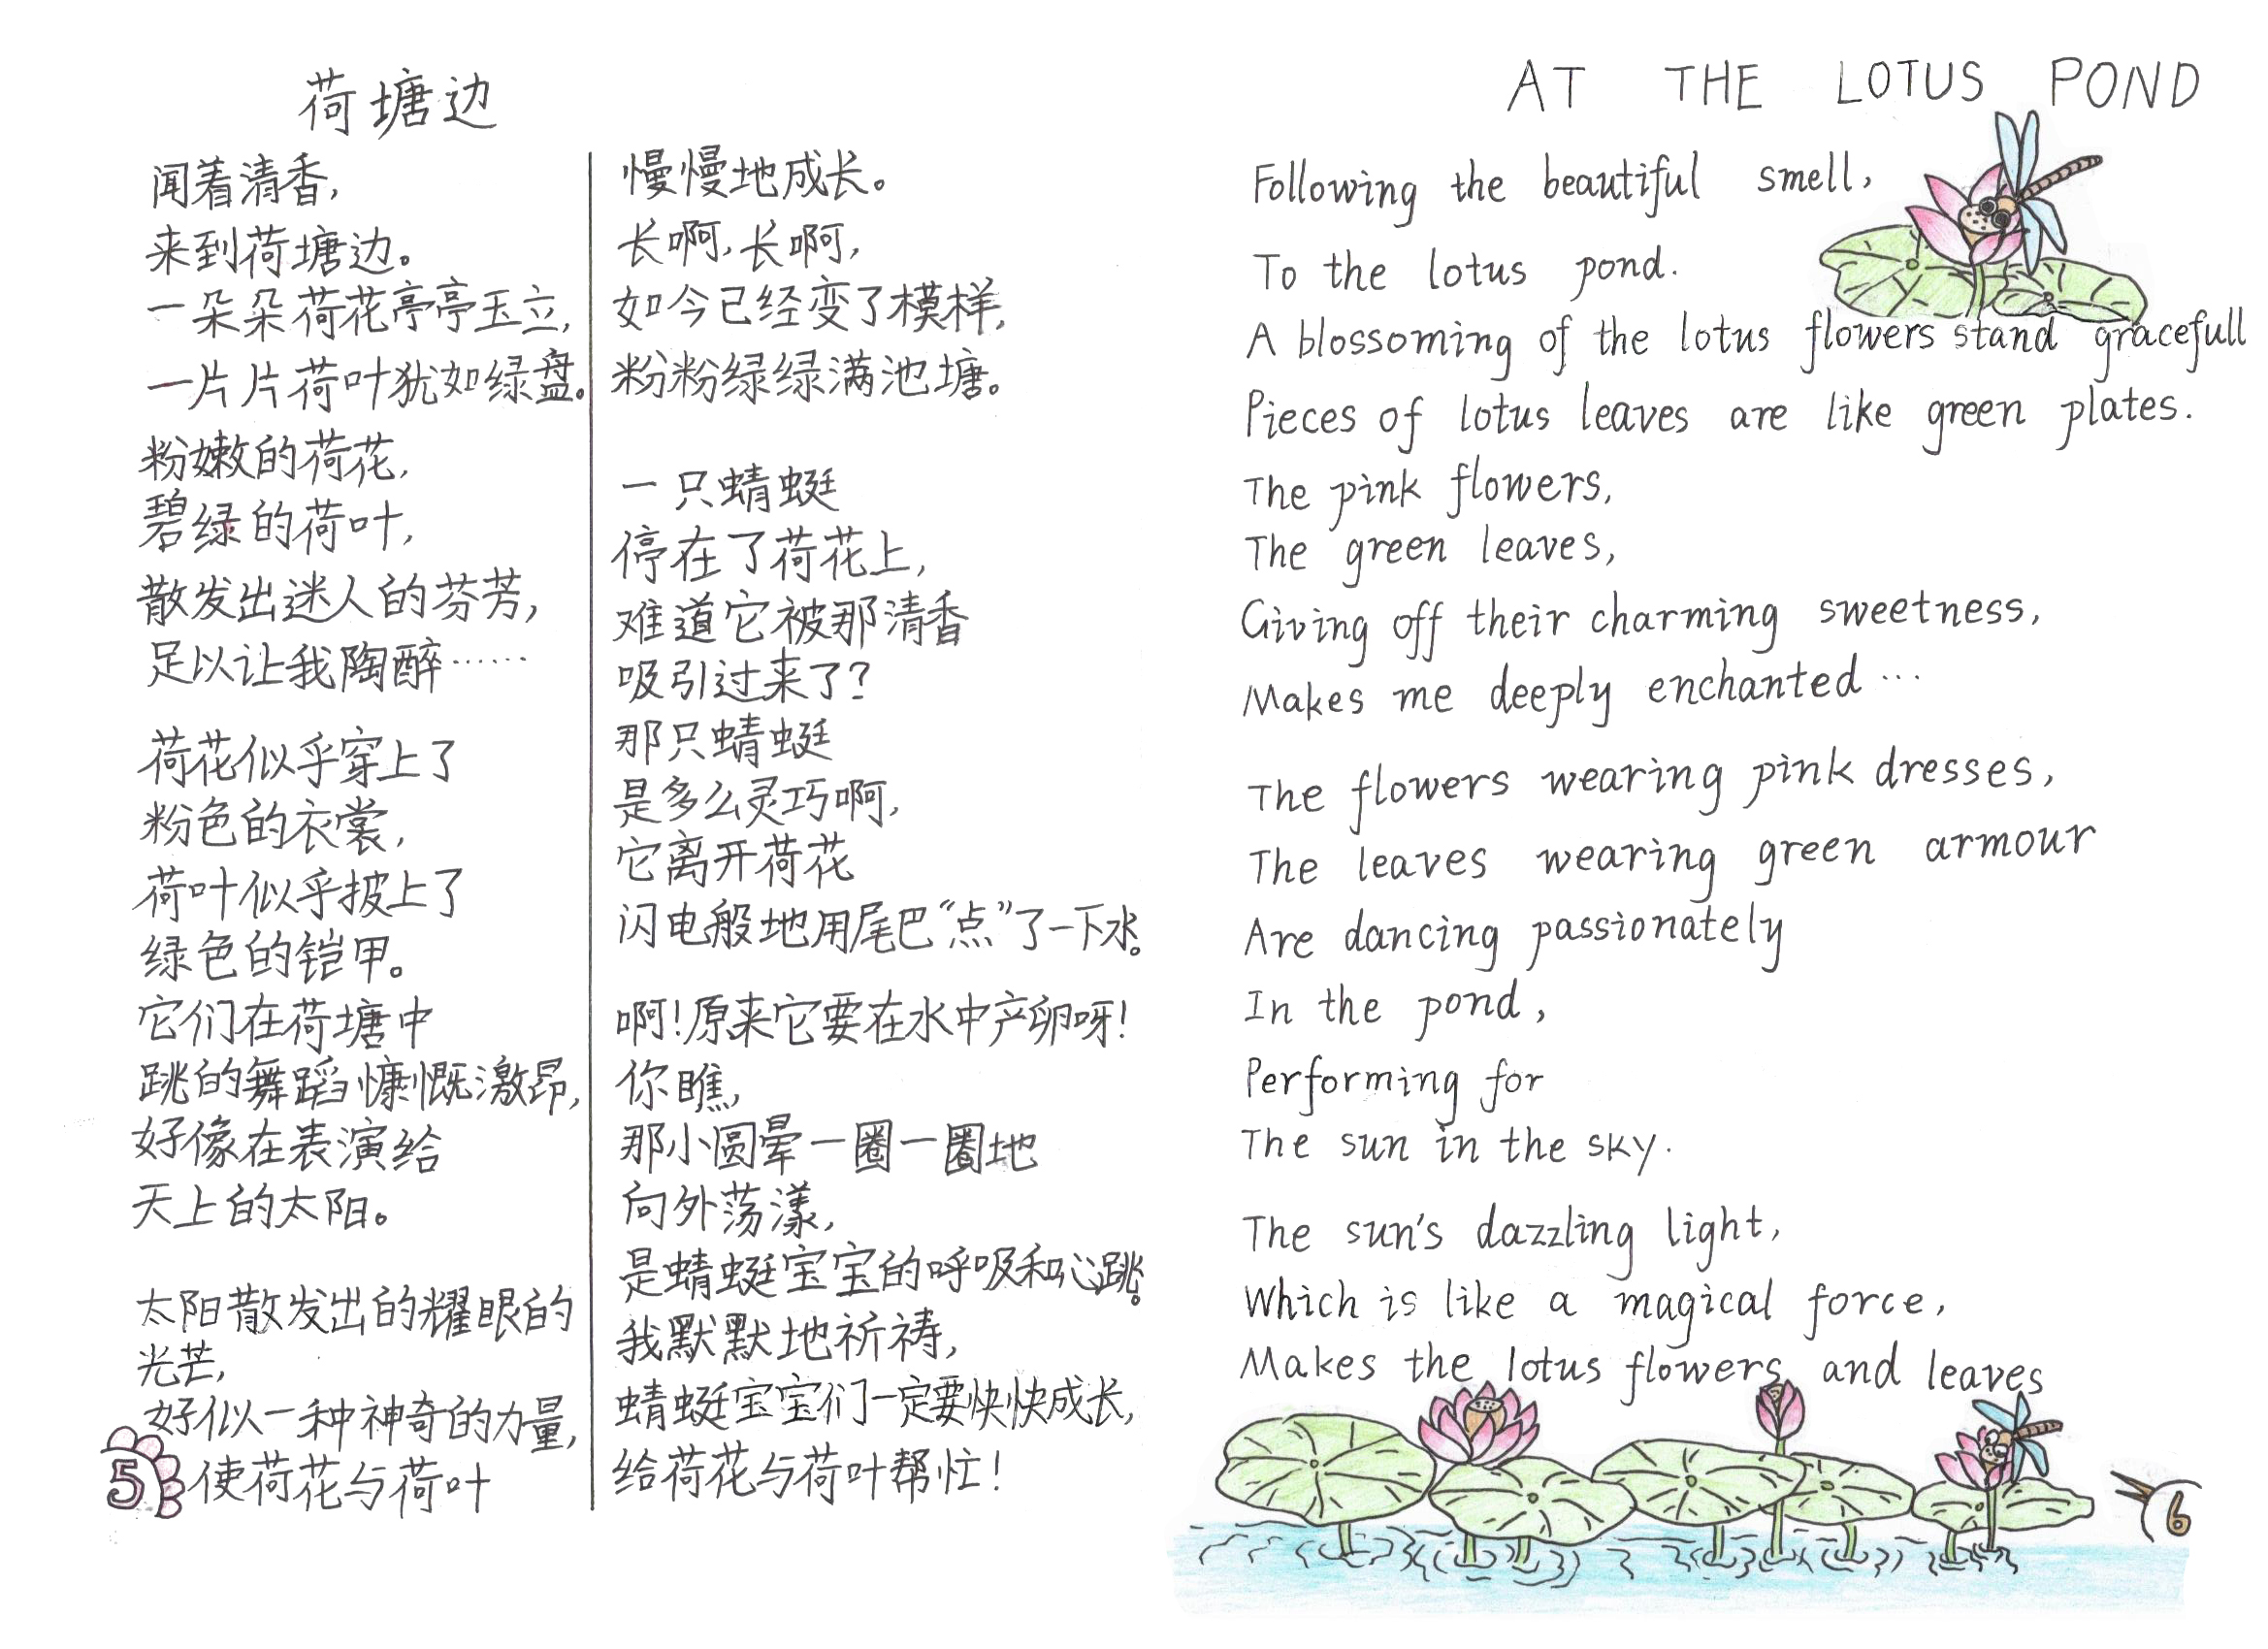 荷塘边
闻着清香,
来到荷塘边。
一朵朵荷花亭亭玉立,
一片片荷叶犹如绿盘。
粉嫩的荷花,
碧绿的荷叶,
散发出迷人的芬芳,
足以让我陶醉……
荷花似乎穿上了
粉色的衣裳,
荷叶似乎披上了
绿色的铠甲。
它们在荷塘中
跳的舞蹈慷慨激昂,
好像在表演给
天上的太阳。
太阳散发出的耀眼的
光芒,
好似一种神奇的力量,
使荷花与荷叶
5
慢慢地成长。
长啊,长啊,
如今已经变了模样,
粉粉绿绿满池塘。
一只蜻蜓
停在了荷花上,
难道它被那清香
吸引过来了?
那只蜻蜓
是多么灵巧啊,
它离开荷花
闪电般地用尾巴“点”了一下水。
啊!原来它要在水中产卵呀!
你瞧,
那小圆晕一圈一圈地
向外荡漾,
是蜻蜓宝宝的呼吸和心跳。
我默默地祈祷,
蜻蜓宝宝们一定要快快成长,
给荷花与荷叶帮忙!
AT THE LOTUS POND
Following the beautiful smell,
To the lotus pond.
A blossoming of the lotus flowers stand gracefull
Pieces of lotus leaves are like green plates.
The pink flowers,
The green leaves,
Giving off their charming sweetness,
Makes me deeply enchanted...
The flowers wearing pink dresses,
The leaves wearing green armour
Are dancing passionately
In the pond,
Performing for
The sun in the sky.
The sun's dazzling light,
Which is like a magical force,
Makes the lotus flowers and leaves
6